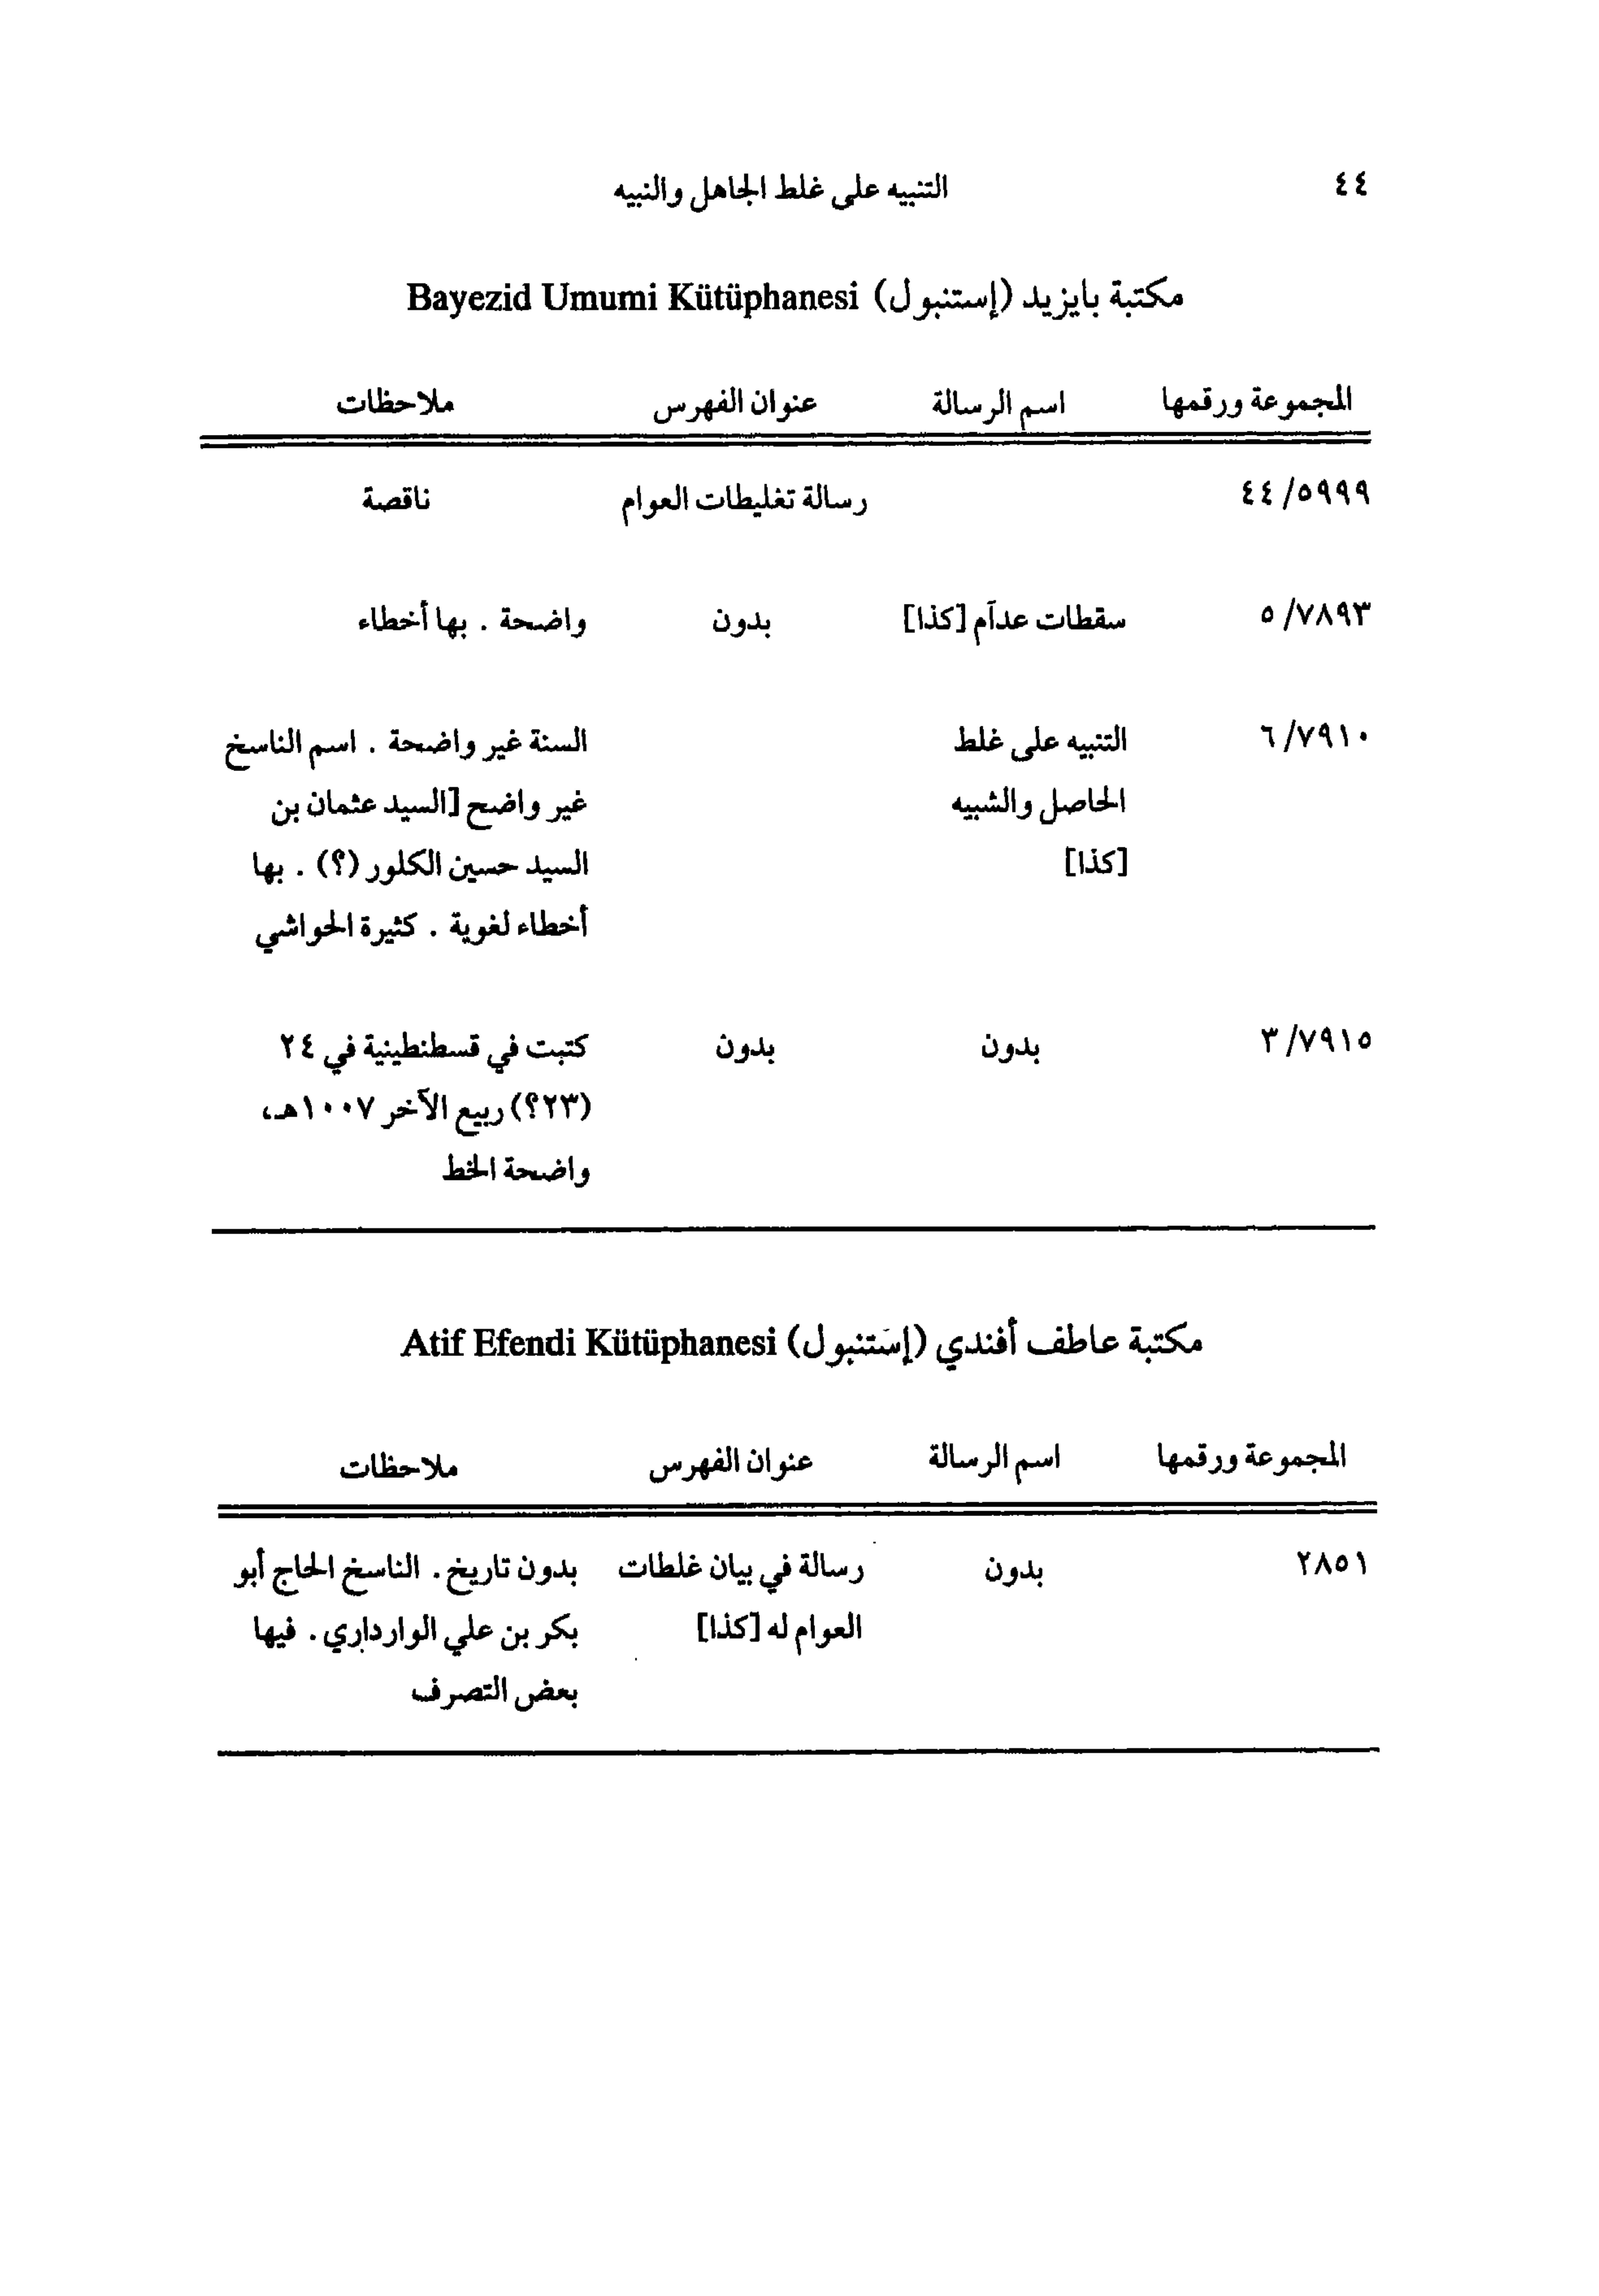 ٤٤ التنبيه على غلط الجاهل والنبيه
مكتبة بايزيد (إستنبول) Bayezid Umumi Kütüphanesi
المجموعة ورقمها اسم الرسالة عنوان الفهرس ملاحظات
٤٤/٥٩٩٩ رسالة تغليطات العوام ناقصة
٥/٧٨٩٣ سقطات عدآم [كذا] بدون واضحة . بها أخطاء
٦/٧٩١٠ التنبيه على غلط السنة غير واضحة . اسم الناسخ
الحاصل والشبيه غير واضح [السيد عثمان بن
[كذا] السيد حسين الكلور (؟) . بها
أخطاء لغوية . كثيرة الحواشي
٣/٧٩١٥ بدون بدون كتبت في قسطنطينية في ٢٤
(٢٣؟) ربيع الآخر ١٠٠٧هـ،
واضحة الخط
مكتبة عاطف أفندي (إستنبول) Atif Efendi Kütüphanesi
المجموعة ورقمها اسم الرسالة عنوان الفهرس ملاحظات
٢٨٥١ بدون رسالة في بيان غلطات بدون تاريخ . الناسخ الحاج أبو
العوام له [كذا] بكر بن علي الوارداري . فيها
بعض التصرف